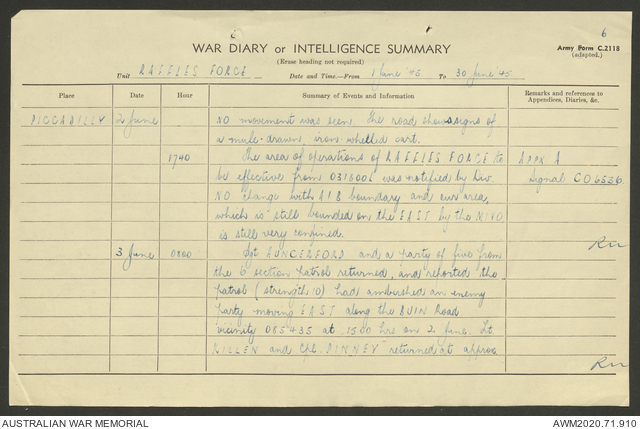 6
WAR DIARY or INTELLIGENCE SUMMARY
Army Form C.2118
(adapted.)
(Erase heading not required)
Unit RAFFLES FORCE Date and Time—From 1 June '45 To 30 June '45
Place Date Hour Summary of Events and Information Remarks and references to
Appendices, Diaries, &c.
PICCADILLY 2 June NO movement was seen. The road shows signs of
a mule-drawn iron-whelled cart.
1740 The area of operations of RAFFLES FORCE to Appx A
be effective from 031800L was notified by Div. Signal CO6536
NO change with AIB boundary and our area,
which is still bounded on the EAST by the MIVO
is still very confined.
3 June 0800 Sgt HUNGERFORD and a party of five from
the 6 section patrol returned, and reported the
patrol (strength 10) had ambushed an enemy
party moving EAST along the BUIN Road
vicinity 085435 at 1500 hrs on 2 June. Lt
KILLEN and Cpl PINNEY returned at approx
AUSTRALIAN WAR MEMORIAL AWM2020.71.910